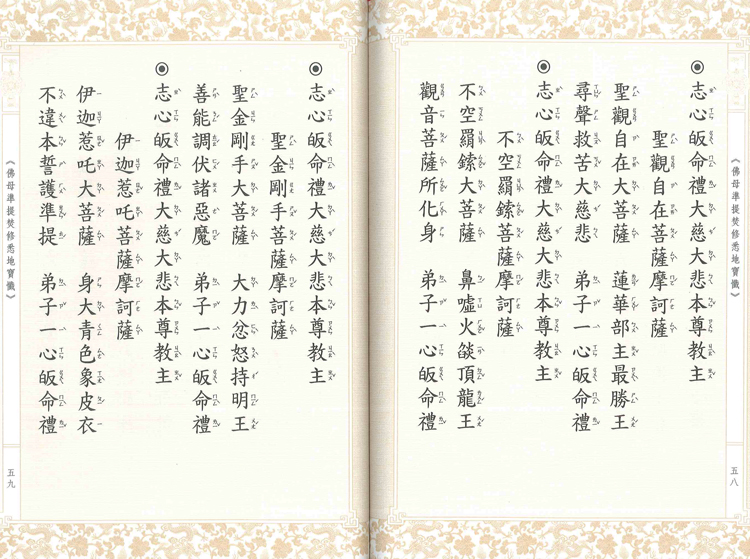 ◉志心皈命禮大慈大悲本尊教主
聖觀自在菩薩摩訶薩
聖觀自在大菩薩 蓮華部主最勝王
尋聲救苦大慈悲 弟子一心皈命禮
◉志心皈命禮大慈大悲本尊教主
不空羂索菩薩摩訶薩
不空羂索大菩薩 鼻噓火燄頂龍王
觀音菩薩所化身 弟子一心皈命禮
《佛母準提焚修悉地寶懺》
五八
◉志心皈命禮大慈大悲本尊教主
聖金剛手菩薩摩訶薩
聖金剛手大菩薩 大力忿怒持明王
善能調伏諸惡魔 弟子一心皈命禮
◉志心皈命禮大慈大悲本尊教主
伊迦惹吒菩薩摩訶薩
伊迦惹吒大菩薩 身大青色象皮衣
不違本誓護準提 弟子一心皈命禮
《佛母準提焚修悉地寶懺》
五九